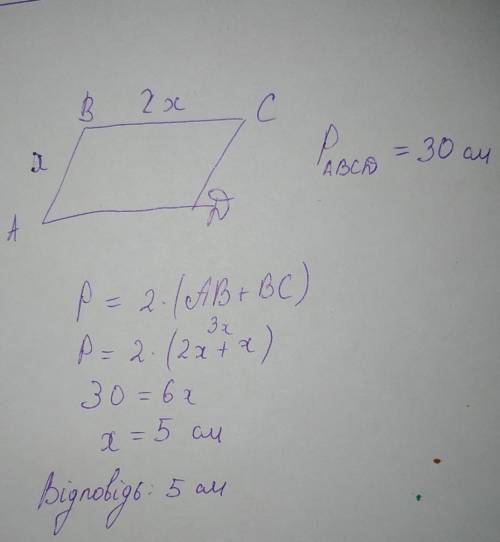 B 2x C
x
A D
P_ABCD = 30 см
P = 2·(AB + BC)
3x
P = 2·(2x + x)
30 = 6x
x = 5 см
Відповідь: 5 см